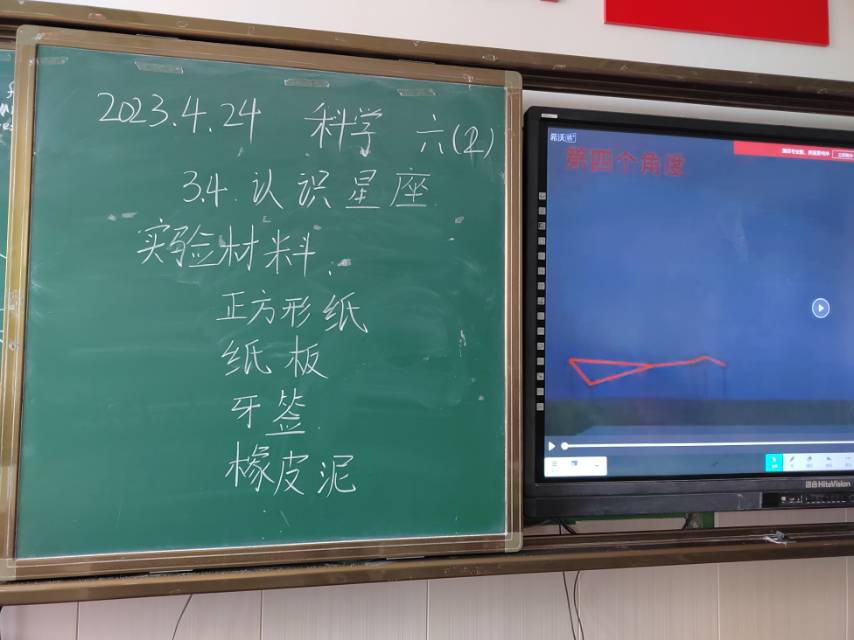 2023.4.24 科学 六(2)
3.4 认识星座
实验材料:
正方形纸
纸板
牙签
橡皮泥
希沃
第四个角度
HiteVision